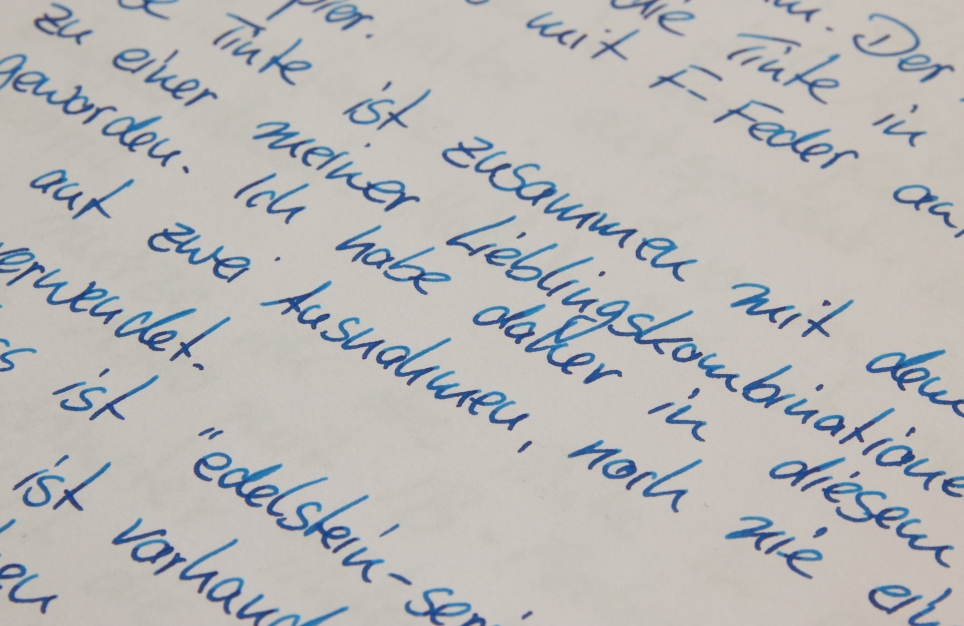 Der
die Tinte in
mit F-Feder auf
Tinte ist zusammen mit dem
zu einer meiner Lieblingskombinatione
geworden. Ich habe daher in diesem
auf zwei Ausnahmen, noch nie ein
verwendet.
ist "edelstein-seri
ist vorhand